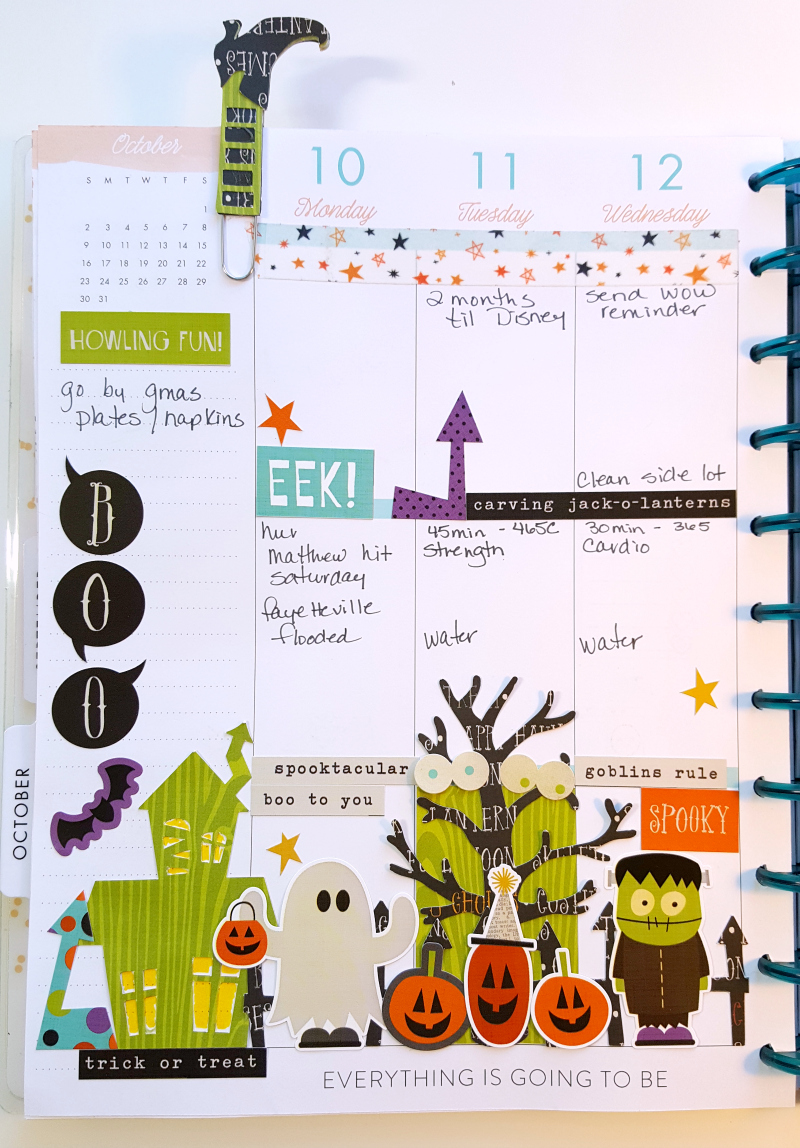 October
S M T W T F S
1
2 3 4 5 6 7 8
9 10 11 12 13 14 15
16 17 18 19 20 21 22
23 24 25 26 27 28 29
30 31
HOWLING FUN!
go by gmas
plates/napkins
B
O
O
OCTOBER
trick or treat
10
Monday
EEK!
hur
Matthew hit
Saturday
fayetteville
flooded
spooktacular
boo to you
11
Tuesday
2 months
til Disney
carving jack-o-lanterns
45min - 465C
Strength
water
12
Wednesday
send wow
reminder
Clean side lot
30min - 365
Cardio
water
goblins rule
SPOOKY
EVERYTHING IS GOING TO BE